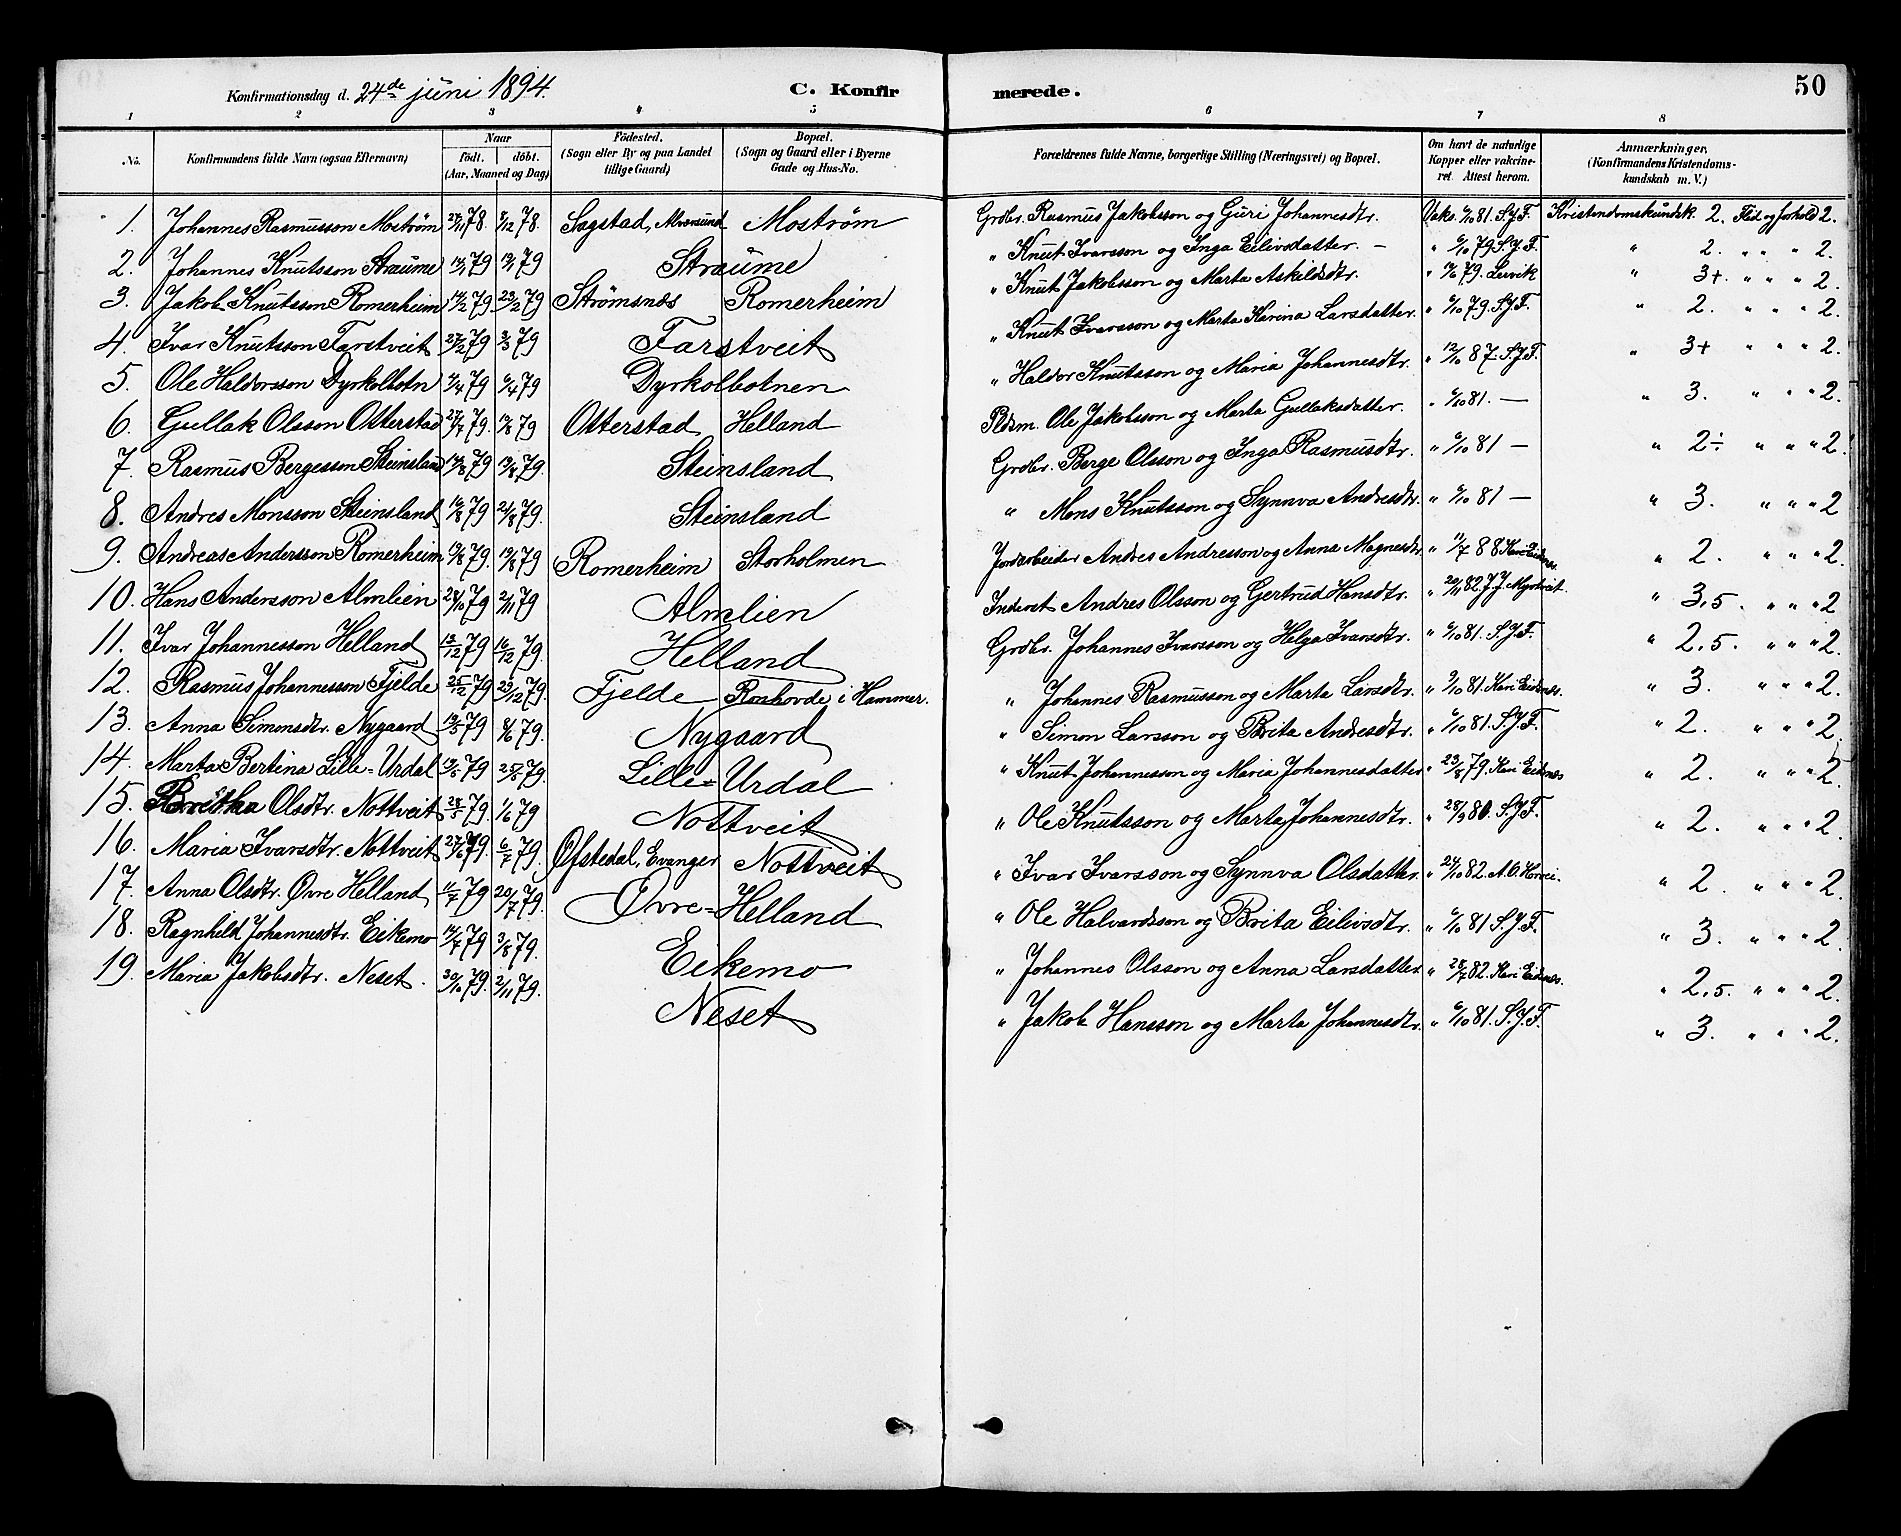 50
Konfirmationsdag d. 24de juni 1894. C. Konfir merede.
1 2 3 4 5 6 7 8
No. Konfirmandens fulde Navn (ogsaa Efternavn) Naar födt. döbt. (Aar, Maaned og Dag) Födested. (Sogn eller By og paa Landet tillige Gaard) Bopæl. (Sogn og Gaard eller i Byerne Gade og Hus-No. Forældrenes fulde Navne, borgerlige Stilling (Næringsvei) og Bopæl. Om havt de naturlige Kopper eller vakcineret. Attest herom. Anmærkninger, (Konfirmandens Kristendomskundskab m. V.)
1. Johannes Rasmusson Moström 27/11 78. 8/12 78. Sagstad, Alversund Moström Grdbr. Rasmus Jakobsson og Guri Johannesdtr. Vaks. 6/10 81. S.J.F. Kristendomskundsk. 2. Flid og forhold 2.
2. Johannes Knutsson Straume 79 79 Straume " Knut Ivarsson og Inga Eilivsdatter. – " 6/10 79. S.J.F. " 2. " " " 2.
3. Jakob Knutsson Romerheim 14/2 79. 23/2 79 Strømsnæs Romerheim " Knut Jakobsson og Marta Askildsdtr. " 79. Leivik " 3+. " " " 2.
4. Ivar Knutsson Farstveit 27/2 79 3/3 79 Farstveit " Knut Ivarsson og Marta Karina Larsdatter. " 6/10 79. S.J.F. " 2. " " " 2.
5. Ole Haldorsson Dyrkolbotn 4/4 79 6/4 79 Dyrkolbotnen " Haldor Knutsson og Maria Johannesdtr. " 12/10 87. S.J.F. " 3+ " " " 2.
6. Gullak Olsson Otterstad 27/7 79. 10/8 79 Otterstad Helland Pldsm. Ole Jakobsson og Marta Gullaksdatter. " 6/10 81. – " 3. " " " 2.
7. Rasmus Bergesson Steinsland 14/8 79 79. Steinsland Grdbr. Berge Olsson og Inga Rasmusdtr. " 6/10 81 – " 2÷ " " " 2.
8. Andres Monsson Steinsland 16/8 79 24/8 79. Steinsland " Mons Knutsson og Synnva Andresdtr. " 6/10 81 – " 3. " " " 2
9. Andreas Andersson Romerheim 10/8 79. 19/8 79 Romerheim Storholmen Jordarbeider Andres Andresson og Anna Magnesdtr. " 11/7 88 Kari Eidsnes. " 2. " " " 2.
10. Hans Andersson Almlien 24/10 79 2/11 79 Almlien Inderst Andres Olsson og Gertrud Hansdtr. " 20/11 82 J.J. Myrtveit. " 3,5. " " " 2
11. Ivar Johannesson Helland 13/12 79 16/12 79. Helland Grdbr. Johannes Ivarsson og Helga Ivarsdtr. " 6/10 81. S.J.F. " 2,5. " " " 2.
12. Rasmus Johannesson Fjelde 25/12 79 23/12 79. Fjelde Ronhovde i Hammer. " Johannes Rasmusson og Marta Larsdtr. " 9/10 81. Kari Eidsnes. " 3. " " " 2.
13. Anna Simonsdtr. Nygaard 19/5 79 8/6 79. Nygaard " Simon Larsson og Brita Andresdtr. " 6/10 81. S.J.F. " 2. " " " 2.
14. Marta Bertina Lille-Urdal 13/5 79 25/5 79. Lille-Urdal " Knut Johannesson og Maria Johannesdatter " 23/8 79. Kari Eidsnes " 2. " " " 2.
15. Olsdtr. Nottveit 28/5 79. 1/6 79 Nottveit " Ole Knutsson og Marta Johannesdtr. " 28/9 80. S.J.F. " 2. " " " 2.
16. Maria Ivarsdtr. Nottveit 27/6 79. 6/7 79. Øfstedal, Evanger Nottveit " Ivar Ivarsson og Synnva Olsdatter. " 24/10 82. A.O. " 2. " " " 2.
17. Anna Olsdtr. Øvre Helland 11/7 79 20/7 79. Øvre-Helland " Ole Halvardsson og Brita Eilivsdtr. " 6/10 81 S.J.F. " 3. " " " 2.
18. Ragnhild Johannesdtr. Eikemo 14/7 79 3/8 79. Eikemo " Johannes Olsson og Anna Larsdatter " 28/7 82. Kari Eidsnes. " 2,5. " " " 2.
19. Maria Jakobsdtr. Neset. 30/10 79. 2/11 79. Neset " Jakob Hansson og Marta Johannesdtr. " 6/10 81. S.J.F. " 3. " " " 2.